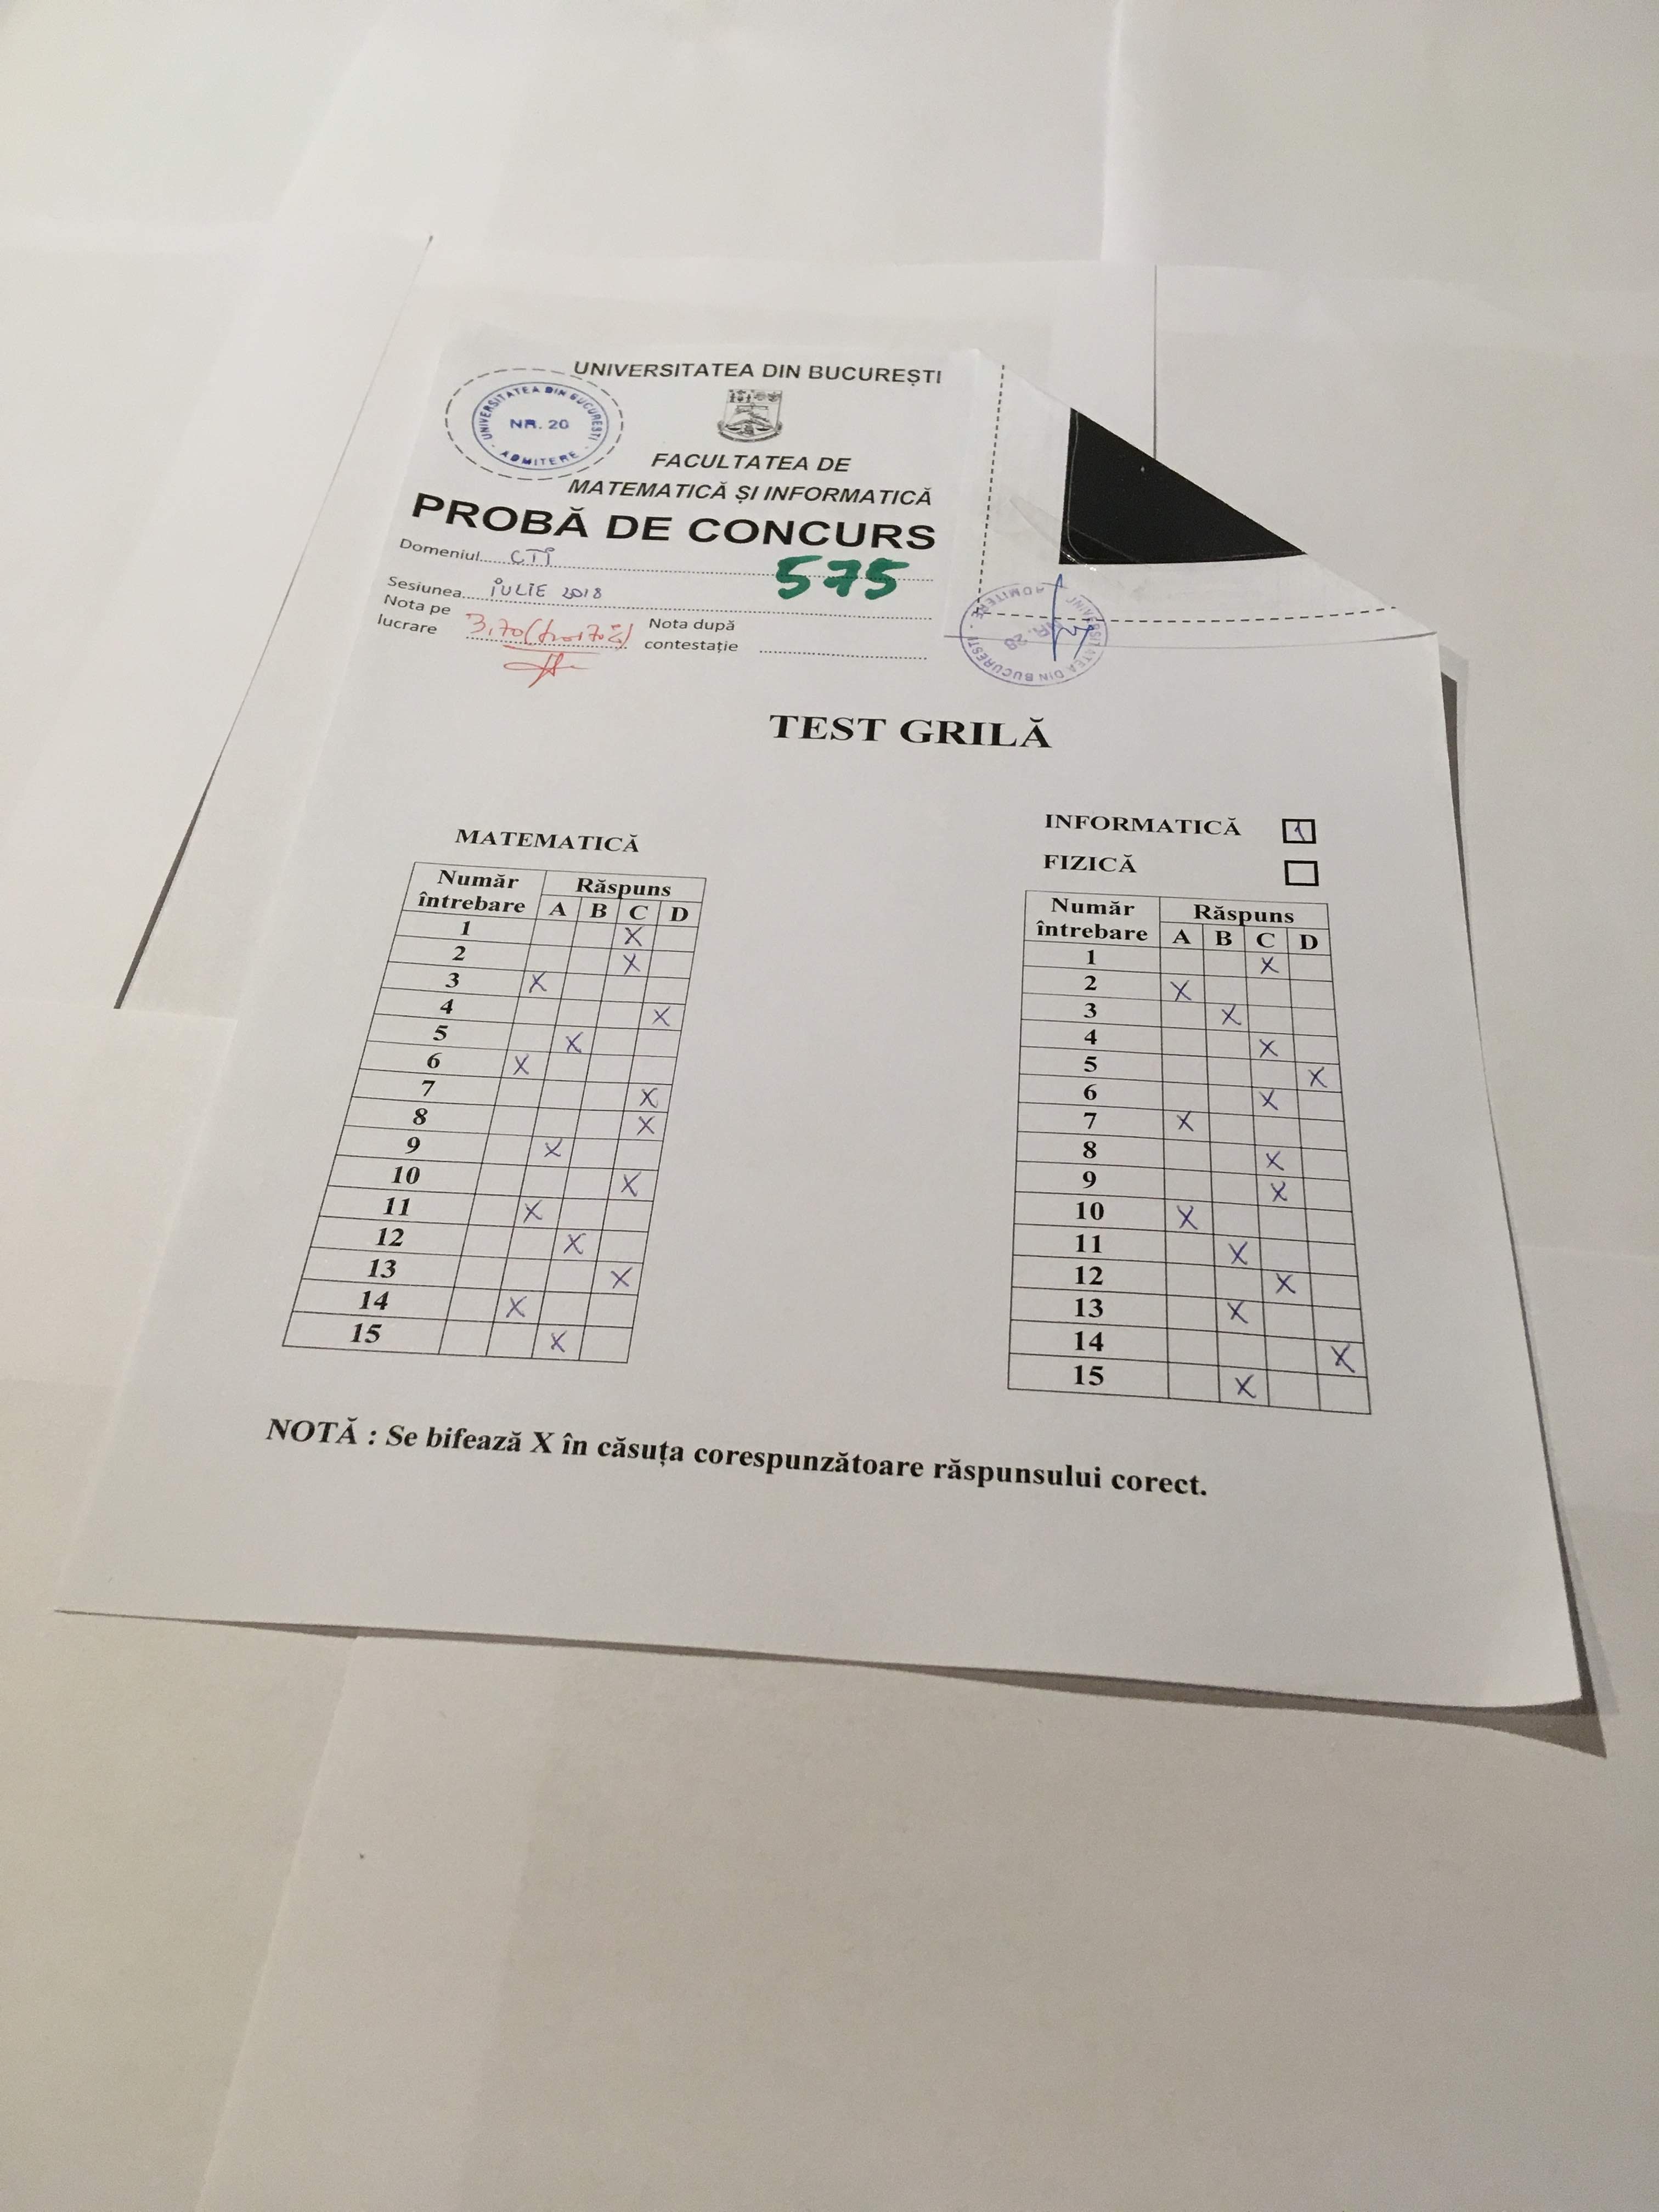 UNIVERSITATEA DIN BUCUREȘTI
UNIVERSITATEA DIN BUCUREȘTI
NR. 20
ADMITERE
FACULTATEA DE
MATEMATICĂ ȘI INFORMATICĂ
PROBĂ DE CONCURS
Domeniul CTI
575
Sesiunea IULIE 2018
Nota pe
lucrare 3,70
Nota după
contestație
UNIVERSITATEA DIN BUCUREȘTI
ADMITERE
NR. 28
TEST GRILĂ
MATEMATICĂ
Număr
întrebare
Răspuns
A B C D
1 X
2 X
3 X
4 X
5 X
6 X
7 X
8 X
9 X
10 X
11 X
12 X
13 X
14 X
15 X
INFORMATICĂ 1
FIZICĂ
Număr
întrebare
Răspuns
A B C D
1 X
2 X
3 X
4 X
5 X
6 X
7 X
8 X
9 X
10 X
11 X
12 X
13 X
14 X
15 X
NOTĂ : Se bifează X în căsuța corespunzătoare răspunsului corect.